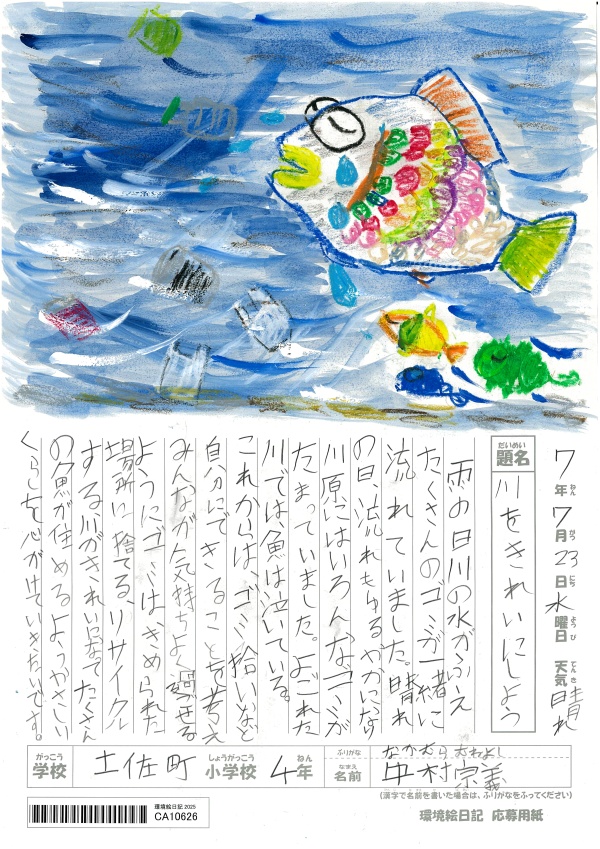 7年7月23日水曜日 天気晴れ
ねん がつ にち ようび てんき
だいめい
題名
川をきれいにしよう
雨の日川の水がふえ
たくさんのゴミが一緒に
流れていました。晴れ
の日、流れもゆるやかになり
川原にはいろんなゴミが
たまっていました。よごれた
川では、魚は泣いている。
これからは、ゴミ拾いなど
自分にできることを考え
みんなが気持ちよく過ごせる
ようにゴミは、きめられた
場所に捨てる、リサイクル
する川がきれいになってたくさん
の魚が住めるようやさしい
くらしを心がけていきたいです。
がっこう
学校
土佐町
しょうがっこう
小学校
4年
ねん
ふりがな
なかむら むねよし
なまえ
名前
中村宗義
(漢字で名前を書いた場合は、ふりがなをふってください)
環境絵日記 2025
CA10626
環境絵日記 応募用紙